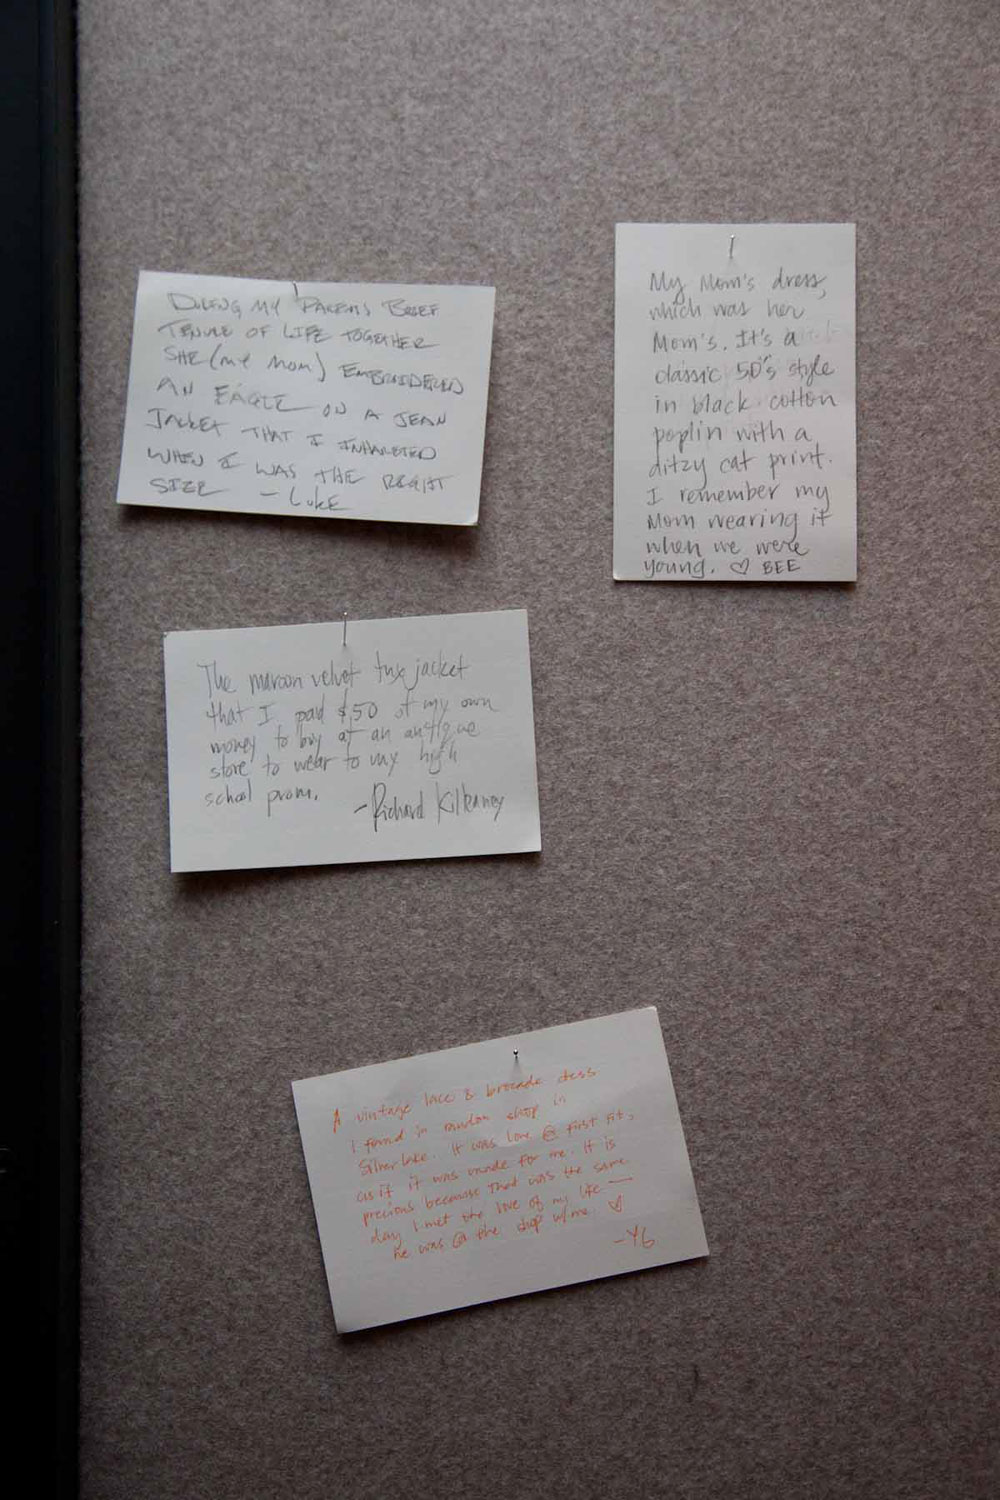 DURING MY PARENTS BRIEF
TENURE OF LIFE TOGETHER
SHE (MY MOM) EMBROIDERED
AN EAGLE ON A JEAN
JACKET THAT I INHERITED
WHEN I WAS THE RIGHT
SIZE - LUKE
My Mom's dress,
which was her
Mom's. It's a
classic 50's style
in black cotton
poplin with a
ditzy cat print.
I remember my
Mom wearing it
when we were
young. ♡ BEE
The maroon velvet tux jacket
that I paid $50 of my own
money to buy at an antique
store to wear to my high
school prom.
- Richard Kilkenney
A vintage lace & brocade dress
I found in random shop in
Silverlake. It was love @ first fit,
as if it was made for me. It is
precious because that was the same
day I met the love of my life —
he was @ the shop w/me. ♡